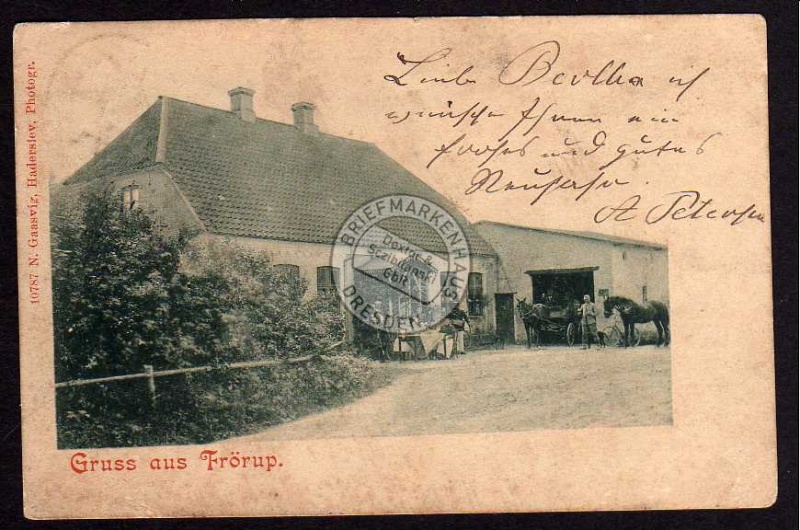 Liebe Bertha ich
wünsche Ihnen ein
frohes und gutes
Neujahr
A Petersen
10787 N. Gaasvig, Haderslev, Photogr.
BRIEFMARKENHAUS
Dexter &
Scibiranski
GbR
DRESDEN
Gruss aus Frörup.